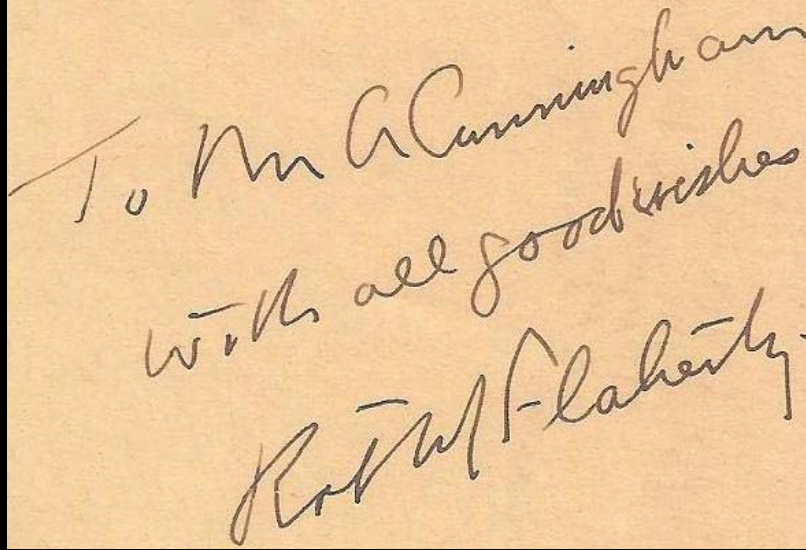 To Mr A Cunningham
with all good wishes
Robt J Flaherty